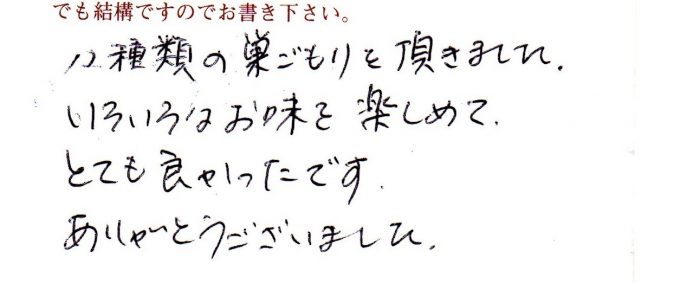 でも結構ですのでお書き下さい。
八種類の巣ごもりを頂きました。
いろいろなお味を楽しめて、
とても良かったです。
ありがとうございました。